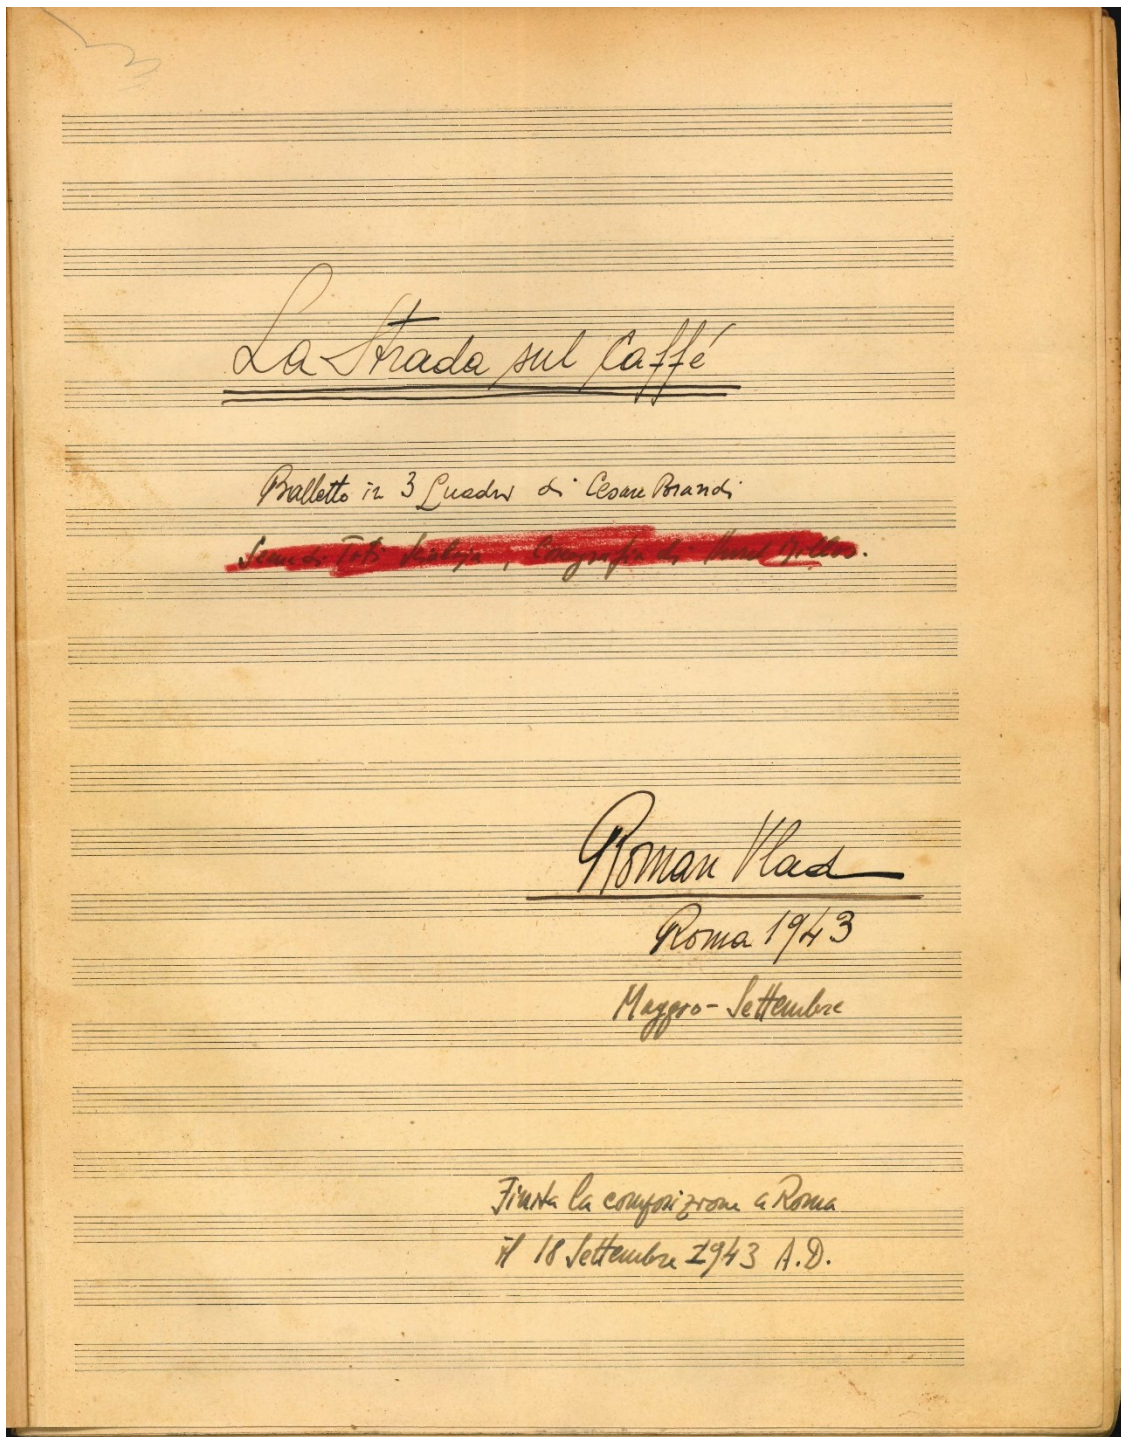 La Strada sul Caffé
Balletto in 3 Quadri di Cesare Brandi
Scene di Toti Scialoja, Coreografia di Aurel Millos.
Roman Vlad
Roma 1943
Maggio - Settembre
Finita la composizione a Roma
il 18 Settembre 1943 A.D.